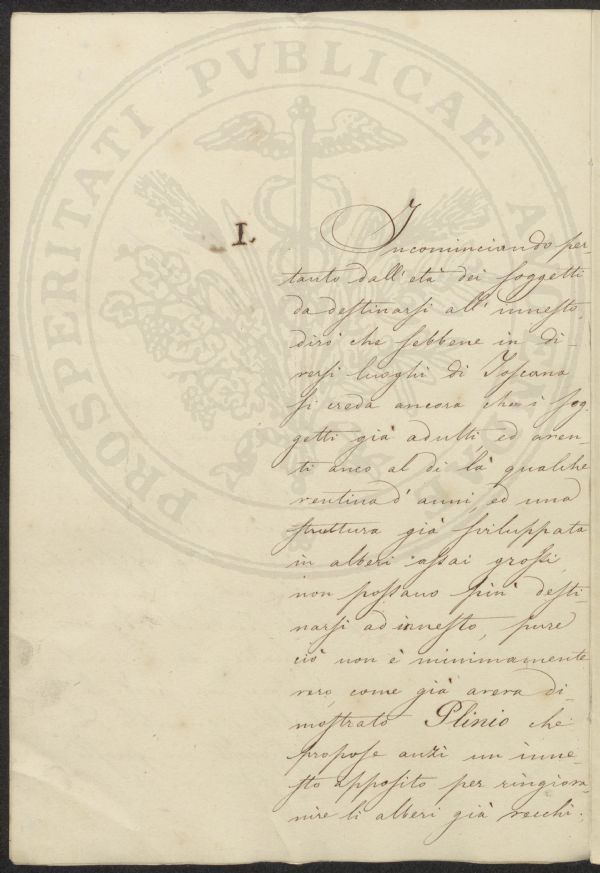 PROSPERITATI PVBLICAE AVGENDAE
I.
Incominciando per-
tanto dall'età dei soggetti
da destinarsi all'innesto,
dirò che sebbene in di-
versi luoghi di Toscana
si creda ancora che i sog-
getti già adulti ed aven-
ti anco al di là qualche
ventina d'anni, ed una
struttura già sviluppata
in alberi assai grossi,
non possano più desti-
narsi ad innesto, pure
ciò non è minimamente
vero, come già aveva di-
mostrato Plinio che
propose anzi un inne-
sto apposito per ringiova-
nire li alberi già vecchi;